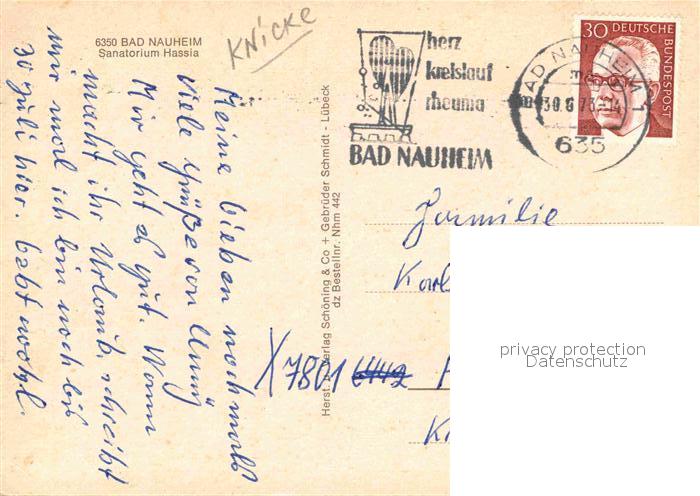 6350 BAD NAUHEIM
Sanatorium Hassia
KNICKE
herz
kreislauf
rheuma
BAD NAUHEIM
30 DEUTSCHE
BUNDESPOST
BAD NAUHEIM 1
30.6.73-14
635
Meine lieben nochmals
viele Grüße von Unny
Mir geht es gut. Wann
macht ihr Urlaub, schreibt
mir mal ich bin noch bis
30 Juli hier.
Herst. u. Verlag Schöning & Co + Gebrüder Schmidt - Lübeck
dz Bestellnr. Nhm 442
Familie
Karl
X 7801
privacy protection
Datenschutz